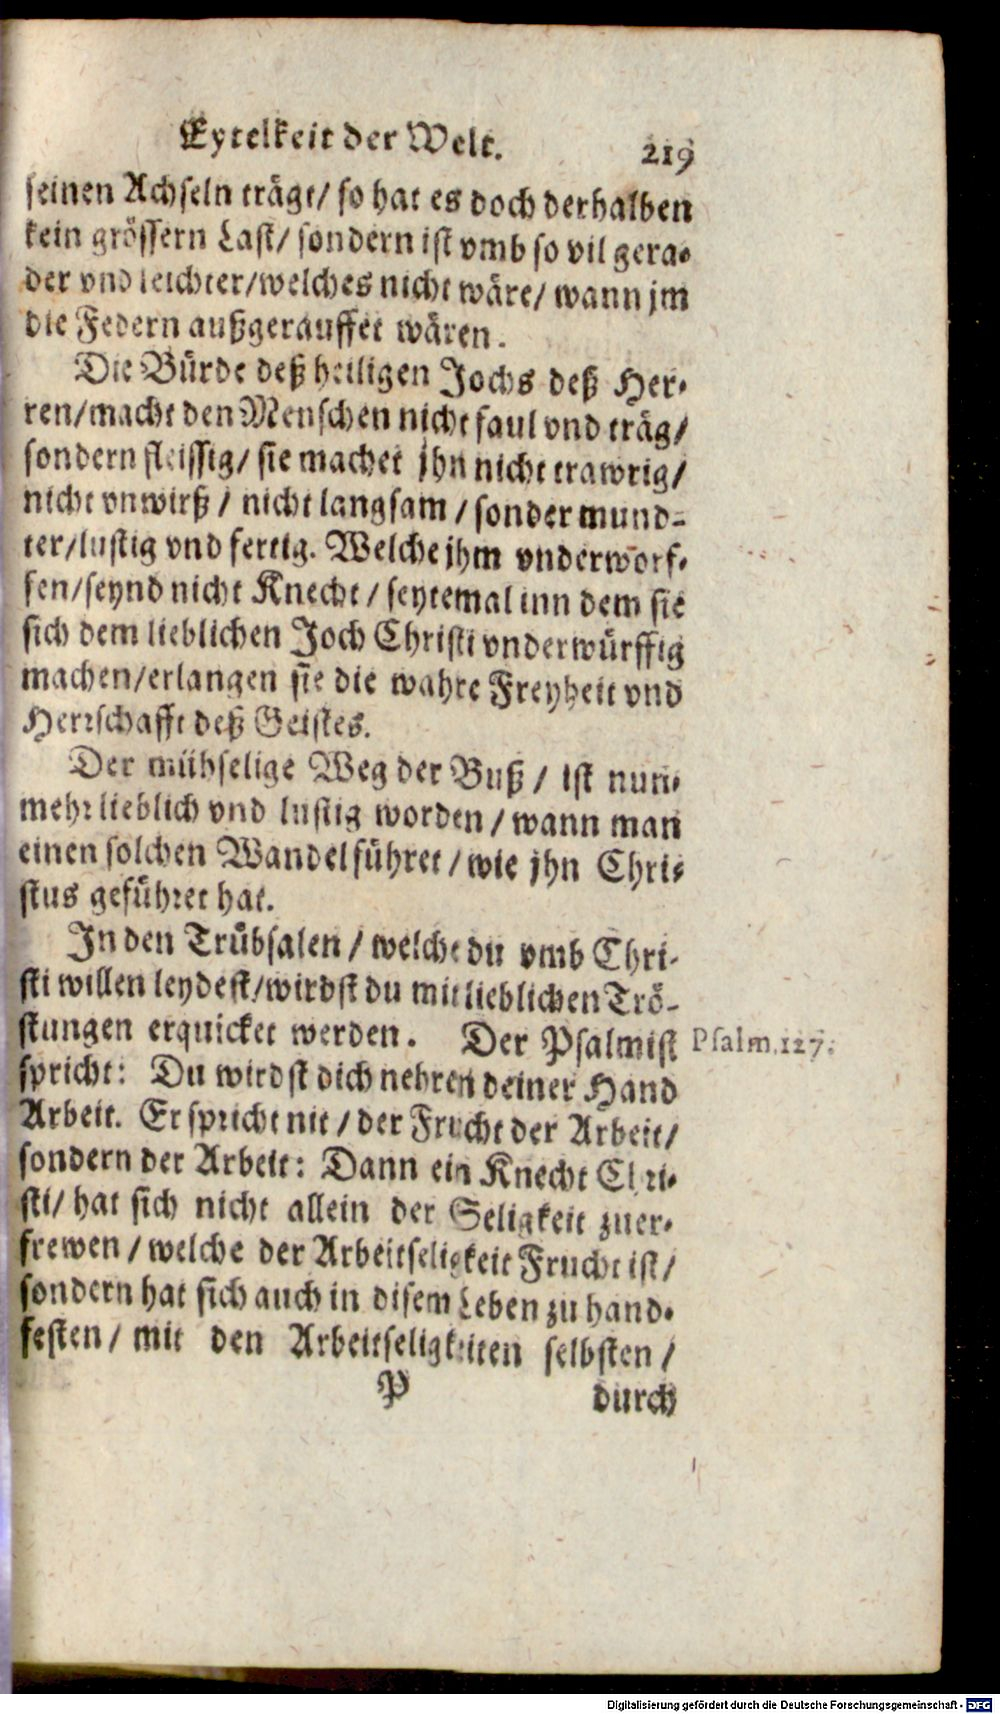 Eytelkeit der Welt. 219
seinen Achseln trägt/ so hat es doch derhalben
kein grössern Last/ sondern ist vmb so vil gera-
der vnd leichter/welches nicht wäre/ wann jm
die Federn außgerauffet wären.
Die Bürde deß heiligen Jochs deß Her-
ren/macht den Menschen nicht faul vnd träg/
sondern fleissig/ sie machet jhn nicht trawrig/
nicht vnwirß / nicht langsam / sonder mund-
ter/lustig vnd fertig. Welche jhm vnderworf-
fen/seynd nicht Knecht / seytemal inn dem sie
sich dem lieblichen Joch Christi vnderwürffig
machen/erlangen sie die wahre Freyheit vnd
Herrschafft deß Geistes.
Der mühselige Weg der Buß / ist nun-
mehr lieblich vnd lustig worden / wann man
einen solchen Wandel führet / wie jhn Chri-
stus geführet hat.
In den Trübsalen / welche du vmb Chri-
sti willen leydest/wirdst du mit lieblichen Trö-
stungen erquicket werden. Der Psalmist Psalm.127.
spricht: Du wirdst dich nehren deiner Hand
Arbeit. Er spricht nit / der Frucht der Arbeit/
sondern der Arbeit: Dann ein Knecht Chri-
sti/ hat sich nicht allein der Seligkeit zuer-
frewen / welche der Arbeitseligkeit Frucht ist/
sondern hat sich auch in disem Leben zu hand-
festen / mit den Arbeitseligkeiten selbsten /
P durch
Digitalisierung gefördert durch die Deutsche Forschungsgemeinschaft - DFG